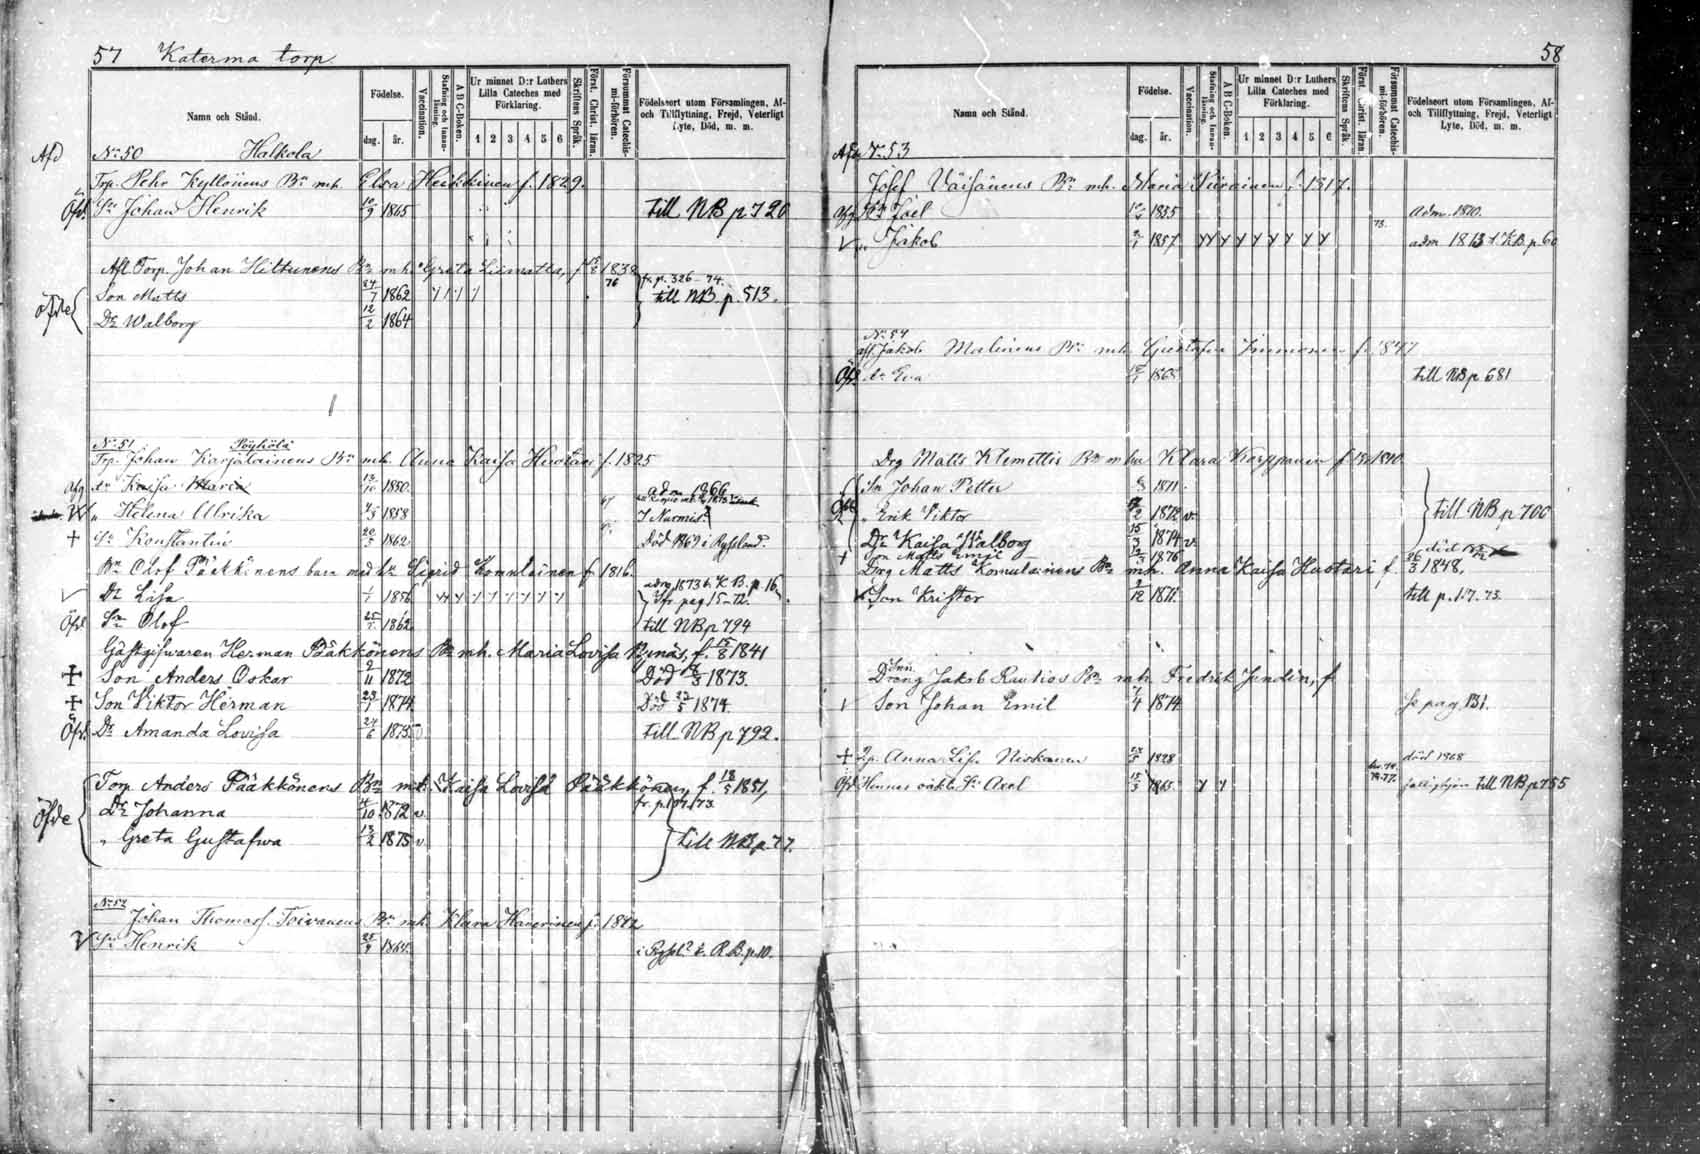 57 Katerma torp
Namn och Stånd.
Födelse.
dag. år.
Vaccination.
Stafning och Innanläsning.
A B C-Boken.
Ur minnet D:r Luthers Lilla Cateches med Förklaring.
1 2 3 4 5 6
Skriftens Språk.
Först. Christ. läran.
Försummat Catechismi-förhören.
Födelseort utom Församlingen, Af- och Tillflyttning, Frejd, Veterligt Lyte, Död, m. m.
Afd No 50 Halkola
Trp. Pehr Kyllönens Bn mh. Elsa Heikkinen f. 1829.
Öfd. Sn Johan Henrik 10/9 1865 till NB p 720
Afl. Torp. Johan Hiltunens Bn mh. Greta Liimatta, f. 1838
76 fr. p. 326-74.
öfde Son Matts 24/7 1862 till NB p. 513.
Dr Walborg 12/2 1864
No 51 Pöyhölä
Trp. Johan Karjalainens Bn mh. Anna Kaisa Huotari f. 1825
afg. dr Kaisa Maria 1850. adm 1866
" Helena Ulrika 1858 I Nurmis
+ Sn Konstantin 20/5 1862 Död 1869 i Ryssland.
Bn Olof Pääkkönens barn med Sigrid Komulainen f. 1816.
Dr Lisa 1856 adm 1873 t. K.B. p. 16
fr pag 15-72.
Öfd Sn Olof 25/7 1862 till NB p 794
Gästgifwaren Herman Pääkkönens Bn mh. Maria Lovisa Bynäs, f. 15/8 1841
+ Son Anders Oskar 2/11 1872 Död 1873.
+ Son Viktor Herman 23/1 1874 Död 22/5 1874.
Öfd. Dr Amanda Lovisa 24/6 1875 till NB p 792.
Torp. Anders Pääkkönens Bn mh. Kaisa Lovisa Pääkkönen, f. 18/5 1851,
öfde Dr Johanna 4/10 1872 v.
" Greta Gustafwa 13/2 1875 v till NB p. 77.
No 52
Johan Thomass. Toivanens Bn mh. Klara Haverinen f. 1842
Sn Henrik 25/9 1864. i Ryssl. t. R.B. p. 10.
58
Namn och Stånd.
Födelse.
dag. år.
Vaccination.
Stafning och Innanläsning.
A B C-Boken.
Ur minnet D:r Luthers Lilla Cateches med Förklaring.
1 2 3 4 5 6
Skriftens Språk.
Först. Christ. läran.
Försummat Catechismi-förhören.
Födelseort utom Församlingen, Af- och Tillflyttning, Frejd, Veterligt Lyte, Död, m. m.
Afd No 53
Josef Väisänens Bn mh. Maria Piirainen f. 1817.
afg. Sn Joel 1855 adm. 1870.
" Jakob 2/1 1857 73. adm 1873 t. K.B. p. 60
No 54
afl. Jakob Malinens Bn mh. Gustafva Immonen f. 1847
Öfd. dr Eva 1868 till NB p 681
Drg Matts Klemettis Bn mh Klara Korppanen f. 1840
Sn Johan Petter 1871
" Erik Viktor 1872 v. till NB p 700
Dr Kaisa Walborg 15/3 1874 v.
+ Son Matts Emil 1876 död
Drg Matts Komulainens Bn mh. Anna Kaisa Huotari f. 26/3 1848,
Son Krister 2/12 1871. till p. 117. 73.
Dräng Jakob Rautios Bn mh. Fredrik Jundin, f
Son Johan Emil 7/4 1874 Se pag. 131.
+ Ip. Anna Lisa Niskanen 1828 död 1868
Öfd Hennes oäkta Sn Axel 15/3 1865. till NB p 755